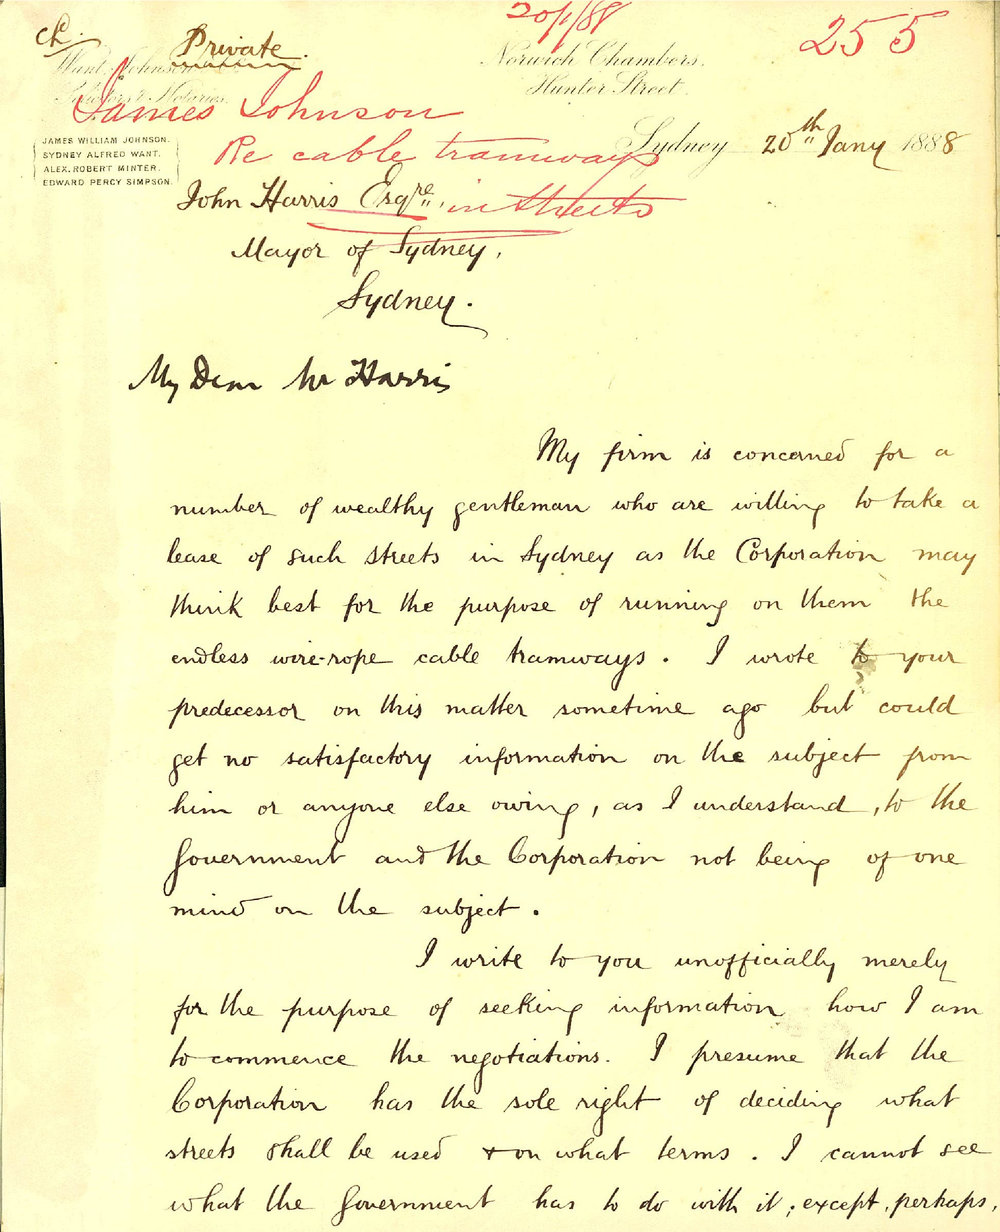 Private
20/1/88
255
Want, Johnson
Solicitors & Notaries.
Norwich Chambers,
Hunter Street.
James Johnson
Re cable tramways
in streets
JAMES WILLIAM JOHNSON.
SYDNEY ALFRED WANT.
ALEX. ROBERT MINTER.
EDWARD PERCY SIMPSON.
Sydney 20th Jany 1888
John Harris Esqre.,
Mayor of Sydney,
Sydney.
My Dear Mr Harris
My firm is concerned for a
number of wealthy gentleman who are willing to take a
lease of such streets in Sydney as the Corporation may
think best for the purpose of running on them the
endless wire-rope cable tramways. I wrote to your
predecessor on this matter sometime ago but could
get no satisfactory information on the subject from
him or anyone else owing, as I understand, to the
Government and the Corporation not being of one
mind on the subject.
I write to you unofficially merely
for the purpose of seeking information how I am
to commence the negotiations. I presume that the
Corporation has the sole right of deciding what
streets shall be used & on what terms. I cannot see
what the Government has to do with it; except, perhaps,